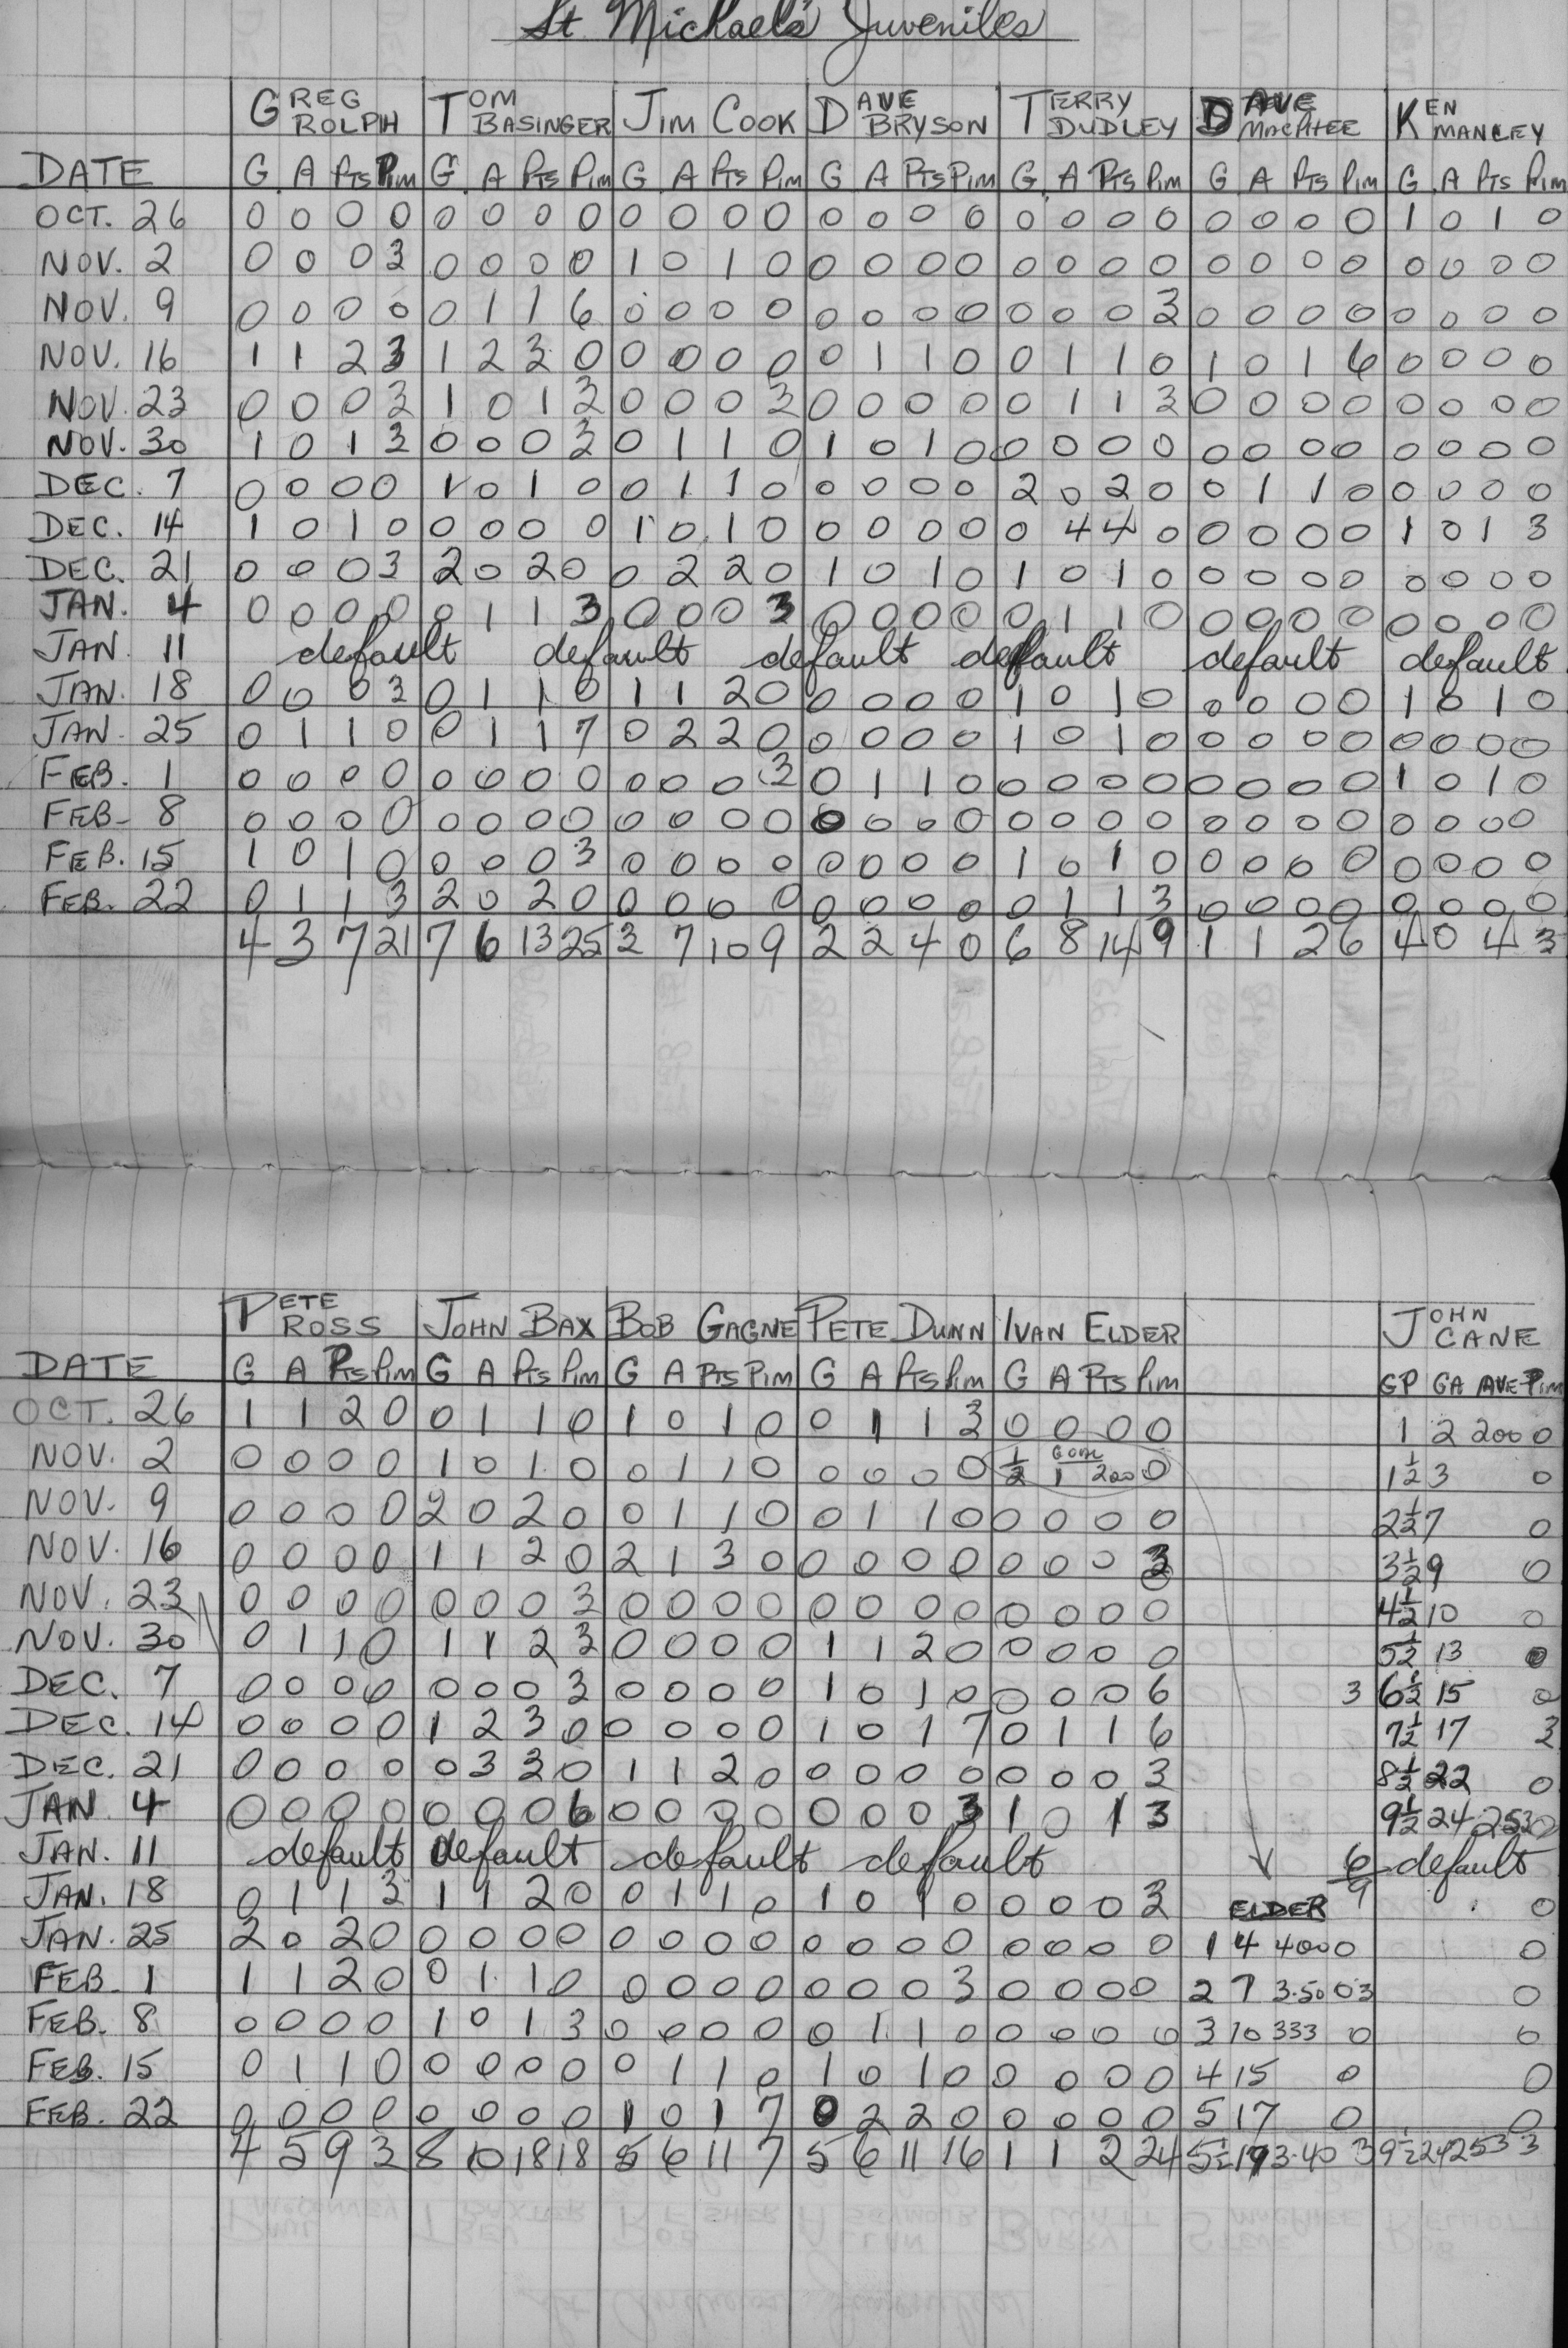 St. Michaels Juveniles
GREG ROLPH TOM BASINGER JIM COOK DAVE BRYSON TERRY DUDLEY DAVE MACPHEE KEN MANLEY
DATE G A Pts Pim G A Pts Pim G A Pts Pim G A Pts Pim G A Pts Pim G A Pts Pim G A Pts Pim
OCT. 26 0 0 0 0 0 0 0 0 0 0 0 0 0 0 0 0 0 0 0 0 0 0 0 0 1 0 1 0
NOV. 2 0 0 0 3 0 0 0 0 1 0 1 0 0 0 0 0 0 0 0 0 0 0 0 0 0 0 0 0
NOV. 9 0 0 0 0 0 1 1 6 0 0 0 0 0 0 0 0 0 0 0 3 0 0 0 0 0 0 0 0
NOV. 16 1 1 2 3 1 2 3 0 0 0 0 0 0 1 1 0 0 1 1 0 1 0 1 6 0 0 0 0
NOV. 23 0 0 0 3 1 0 1 3 0 0 0 3 0 0 0 0 0 1 1 3 0 0 0 0 0 0 0 0
NOV. 30 1 0 1 3 0 0 0 3 0 1 1 0 1 0 1 0 0 0 0 0 0 0 0 0 0 0 0 0
DEC. 7 0 0 0 0 1 0 1 0 0 1 1 0 0 0 0 0 2 0 2 0 0 1 1 0 0 0 0 0
DEC. 14 1 0 1 0 0 0 0 0 1 0 1 0 0 0 0 0 0 4 4 0 0 0 0 0 1 0 1 3
DEC. 21 0 0 0 3 2 0 2 0 0 2 2 0 1 0 1 0 1 0 1 0 0 0 0 0 0 0 0 0
JAN. 4 0 0 0 0 0 1 1 3 0 0 0 3 0 0 0 0 0 1 1 0 0 0 0 0 0 0 0 0
JAN. 11 default default default default default default
JAN. 18 0 0 0 3 0 1 1 0 1 1 2 0 0 0 0 0 1 0 1 0 0 0 0 0 1 0 1 0
JAN. 25 0 1 1 0 0 1 1 7 0 2 2 0 0 0 0 0 1 0 1 0 0 0 0 0 0 0 0 0
FEB. 1 0 0 0 0 0 0 0 0 0 0 0 3 0 1 1 0 0 0 0 0 0 0 0 0 1 0 1 0
FEB. 8 0 0 0 0 0 0 0 0 0 0 0 0 0 0 0 0 0 0 0 0 0 0 0 0 0 0 0 0
FEB. 15 1 0 1 0 0 0 0 3 0 0 0 0 0 0 0 0 1 0 1 0 0 0 0 0 0 0 0 0
FEB. 22 0 1 1 3 2 0 2 0 0 0 0 0 0 0 0 0 0 1 1 3 0 0 0 0 0 0 0 0
4 3 7 21 7 6 13 25 3 7 10 9 2 2 4 0 6 8 14 9 1 1 2 6 4 0 4 3
PETE ROSS JOHN BAX BOB GAGNE PETE DUNN IVAN ELDER JOHN CANE
DATE G A Pts Pim G A Pts Pim G A Pts Pim G A Pts Pim G A Pts Pim GP GA AVE Pim
OCT. 26 1 1 2 0 0 1 1 0 1 0 1 0 0 1 1 3 0 0 0 0 1 2 200 0
NOV. 2 0 0 0 0 1 0 1 0 0 1 1 0 0 0 0 0 ½ 1 200 0 1½ 3 0
NOV. 9 0 0 0 0 2 0 2 0 0 1 1 0 0 1 1 0 0 0 0 0 2½ 7 0
NOV. 16 0 0 0 0 1 1 2 0 2 1 3 0 0 0 0 0 0 0 0 3 3½ 9 0
NOV. 23 0 0 0 0 0 0 0 3 0 0 0 0 0 0 0 0 0 0 0 0 4½ 10 0
NOV. 30 0 1 1 0 1 1 2 3 0 0 0 0 1 1 2 0 0 0 0 0 5½ 13 0
DEC. 7 0 0 0 0 0 0 0 3 0 0 0 0 1 0 1 0 0 0 0 6 3 6½ 15 0
DEC. 14 0 0 0 0 1 2 3 0 0 0 0 0 1 0 1 7 0 1 1 6 7½ 17 3
DEC. 21 0 0 0 0 0 3 3 0 1 1 2 0 0 0 0 0 0 0 0 3 8½ 22 0
JAN 4 0 0 0 0 0 0 0 6 0 0 0 0 0 0 0 3 1 0 1 3 9½ 24 253 0
JAN. 11 default default default default 6 default
JAN. 18 0 1 1 3 1 1 2 0 0 1 1 0 1 0 1 0 0 0 0 3 ELDER 9 0
JAN. 25 2 0 2 0 0 0 0 0 0 0 0 0 0 0 0 0 0 0 0 0 1 4 400 0 0
FEB. 1 1 1 2 0 0 1 1 0 0 0 0 0 0 0 0 3 0 0 0 0 2 7 3.50 03 0
FEB. 8 0 0 0 0 1 0 1 3 0 0 0 0 0 1 1 0 0 0 0 0 3 10 333 0 0
FEB. 15 0 1 1 0 0 0 0 0 0 1 1 0 1 0 1 0 0 0 0 0 4 15 0 0
FEB. 22 0 0 0 0 0 0 0 0 1 0 1 7 0 2 2 0 0 0 0 0 5 17 0 0
4 5 9 3 8 10 18 18 5 6 11 7 5 6 11 16 1 1 2 24 5½ 19 3.40 3 9½ 24 253 3